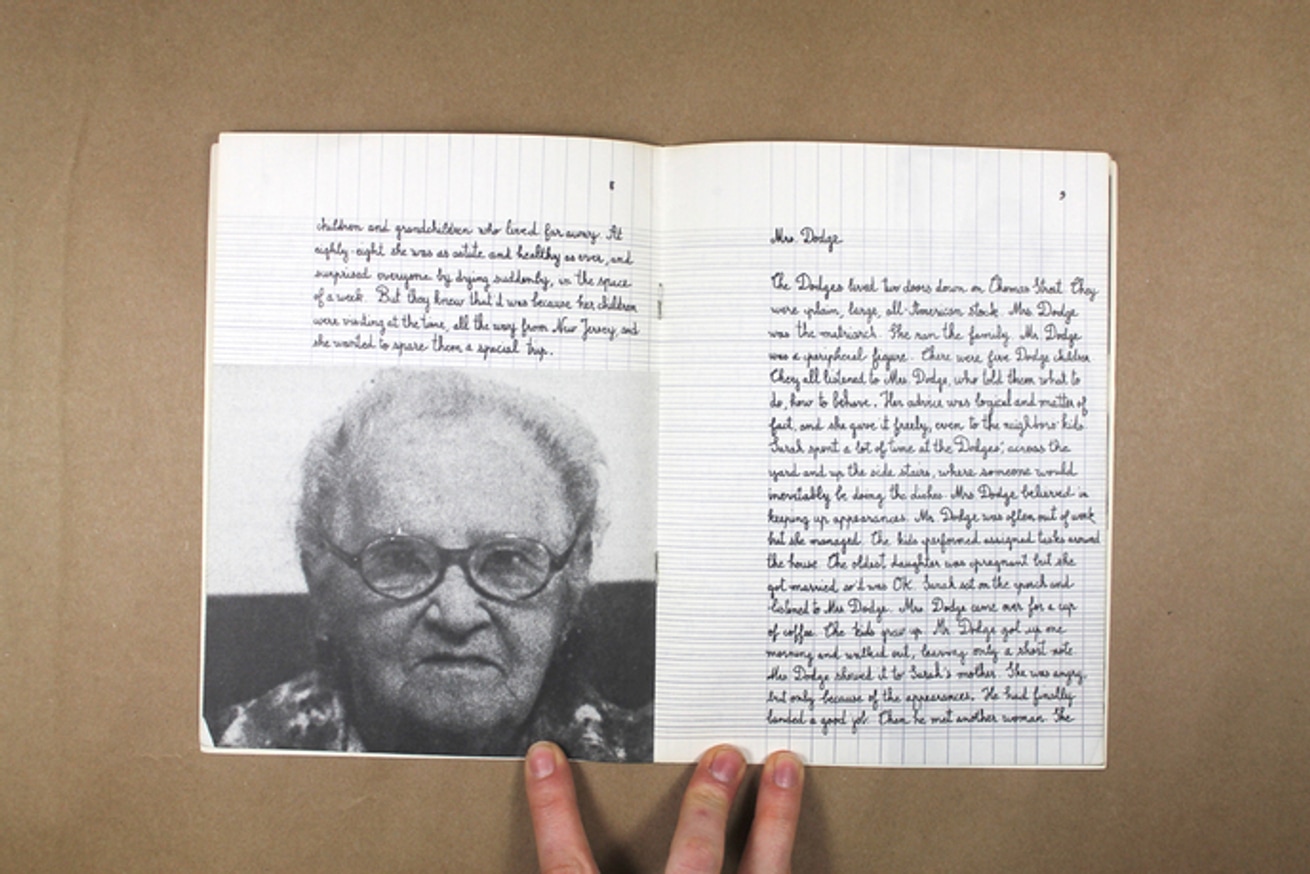 children and grandchildren who lived far away. At
eighty-eight she was as astute and healthy as ever, and
surprised everyone by dying suddenly, in the space
of a week. But they knew that it was because her children
were visiting at the time, all the way from New Jersey, and
she wanted to spare them a special trip.
Mrs. Dodge
The Dodges lived two doors down on Thomas Street. They
were plain, large, all-American stock. Mrs. Dodge
was the matriarch. She ran the family. Mr. Dodge
was a peripheral figure. There were five Dodge children.
They all listened to Mrs. Dodge, who told them what to
do, how to behave. Her advice was logical and matter of
fact, and she gave it freely, even to the neighbors' kids.
Sarah spent a lot of time at the Dodges', across the
yard and up the side stairs, where someone would
inevitably be doing the dishes. Mrs. Dodge believed in
keeping up appearances. Mr. Dodge was often out of work
but she managed. The kids performed assigned tasks around
the house. The oldest daughter was pregnant but she
got married so it was OK. Sarah sat on the porch and
listened to Mrs. Dodge. Mrs. Dodge came over for a cup
of coffee. The kids grew up. Mr. Dodge got up one
morning and walked out, leaving only a short note.
Mrs. Dodge showed it to Sarah's mother. She was angry,
but only because of the appearances. He had finally
landed a good job. Then he met another woman. She